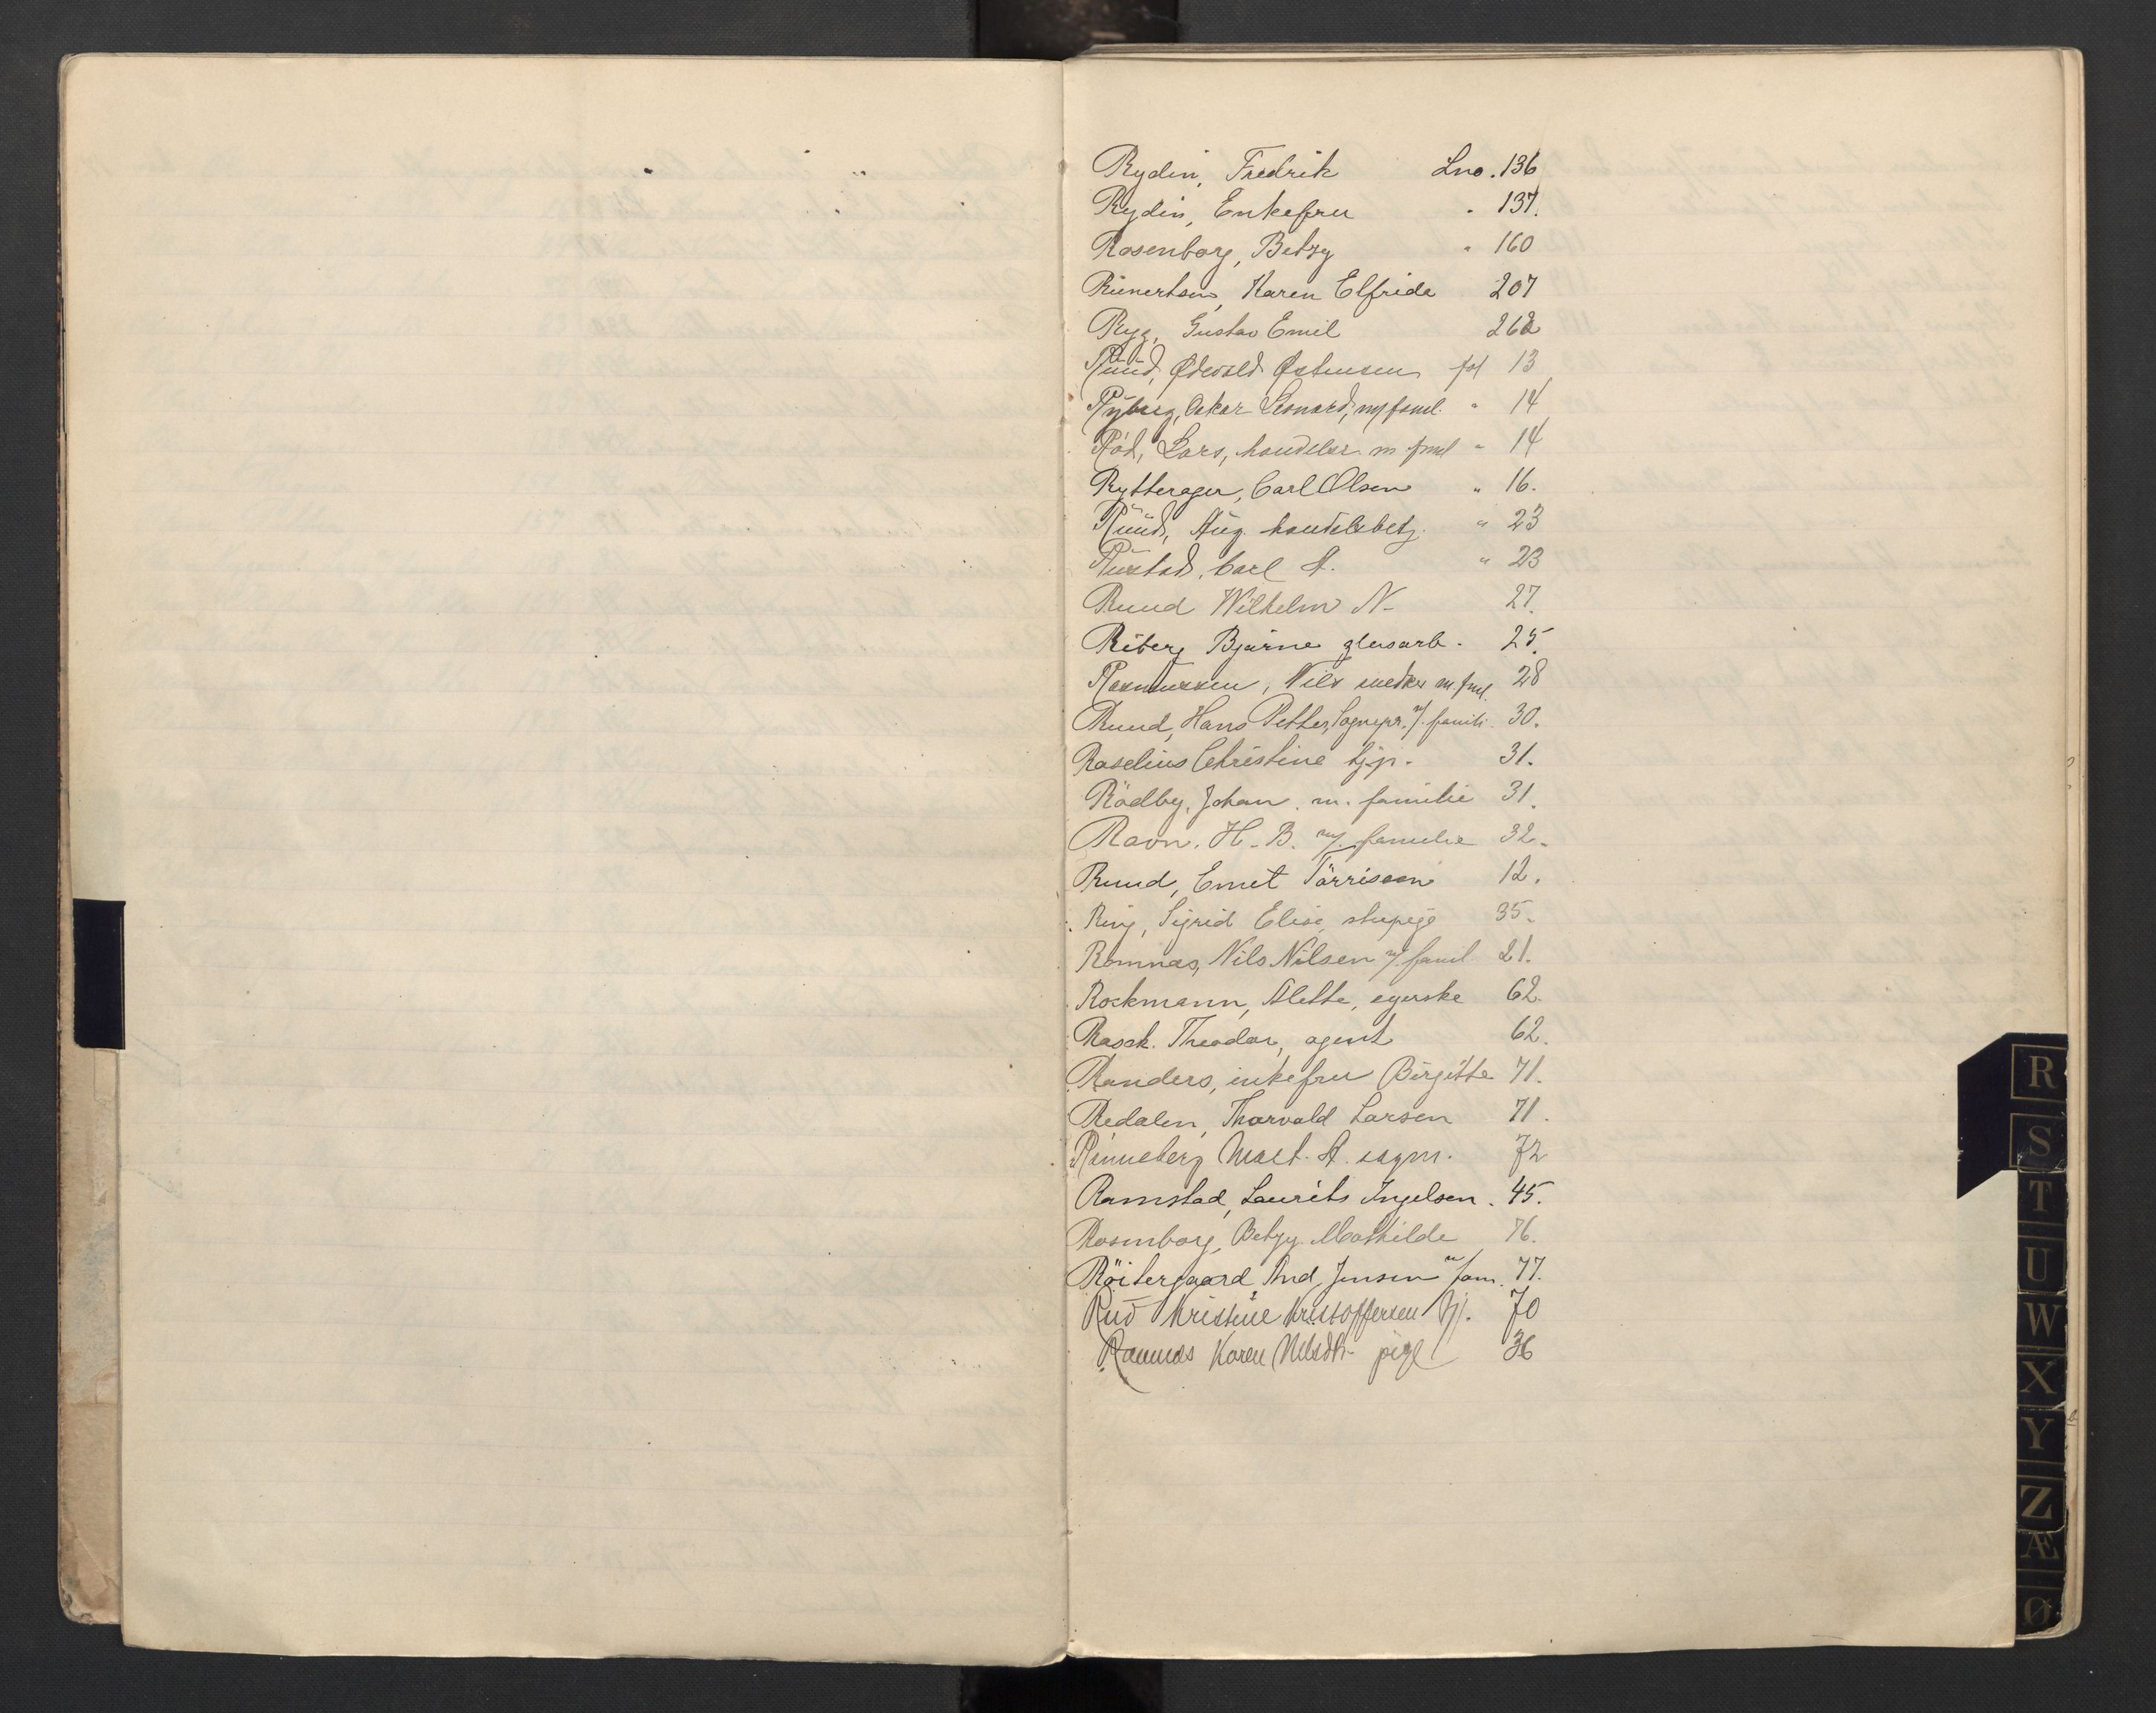 Rydin, Fredrik Lno. 136
Rydin, Enkefru " 137.
Rosenborg, Betzy " 160
Karen Elfrida 207
Ryg, Gustav Emil 262
Ruud, Østensen fol 13
Ryberg, Oskar Leonard, m/famil. " 14
Rød, Lars, handelsr. m. faml " 14
Rytterager, Carl Olsen " 16.
Ruud, Aug. handelsbetj. " 23
Rustad, Carl A. " 23
Ruud Wilhelm N- 27.
Riberg Bjarne glusarb. 25.
Rasmussen, Nils snedker m. fml. 28
Ruud, Hans Petter, Sognepr. m/. famili. 30.
Roselius Christine tj.p. 31.
Rödby, Johan. m. familie 31.
Ravn. H. B. m/. familie 32.
Ruud, Emet Törrissen 12.
Ring, Sigrid Elise, stupige 35.
Romnæs, Nils Nilsen m/ famil. 21.
Rockmann, Alette, 62.
Rasck. Theodor, agent 62.
Randers, enkefru Birgitte 71.
Redalen, Thorvald Larsen 71.
Rønneberg Mart. A. sagm. 72
Ramstad, Laurits Ingelsen. 45.
Rosenborg, Betzy Mathilde 76.
Röitergaard And, Jensen m/fam. 77.
Rud Kristine Kristoffersen tj. 70
Romnæs Karen Nilsdtr pige 36
R
S
T
U
W
X
Y
Z
Æ
Ø